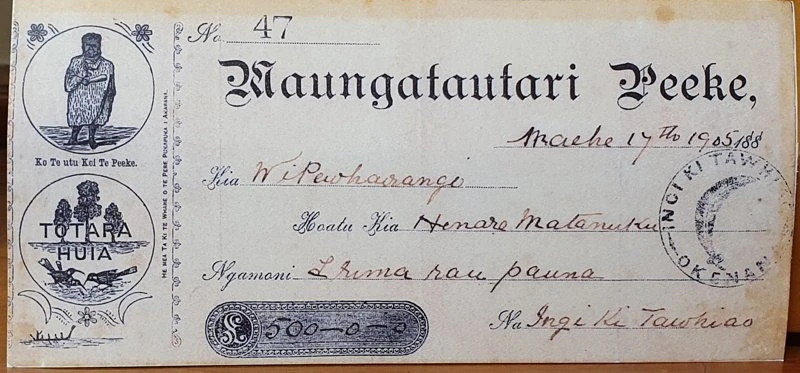 No 47
Maungatautari Peeke,
Maehe 17th 1905 188
Kia Wi Pewhairangi
Hoatu Kia Henare Matanuku
Ngamoni £ rima rau pauna
£ 500-0-0
Na Ingi Ki Tawhiao
INGI KI TAWH
OKENA
Ko Te utu Kei Te Peeke.
TOTARA
HUIA
HE MEA TA KI TE WHARE O TE PERE PUKAPUKA I AKARANA.